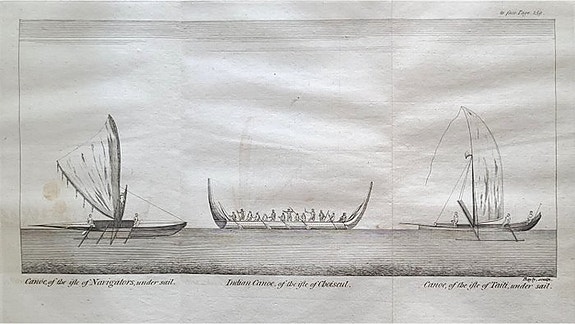 to face Page. 159.
Bayly, sculp.
Canoe, of the isle of Navigators, under sail.
Indian Canoe, of the isle of Choiseul.
Canoe, of the isle of Taiti, under sail.